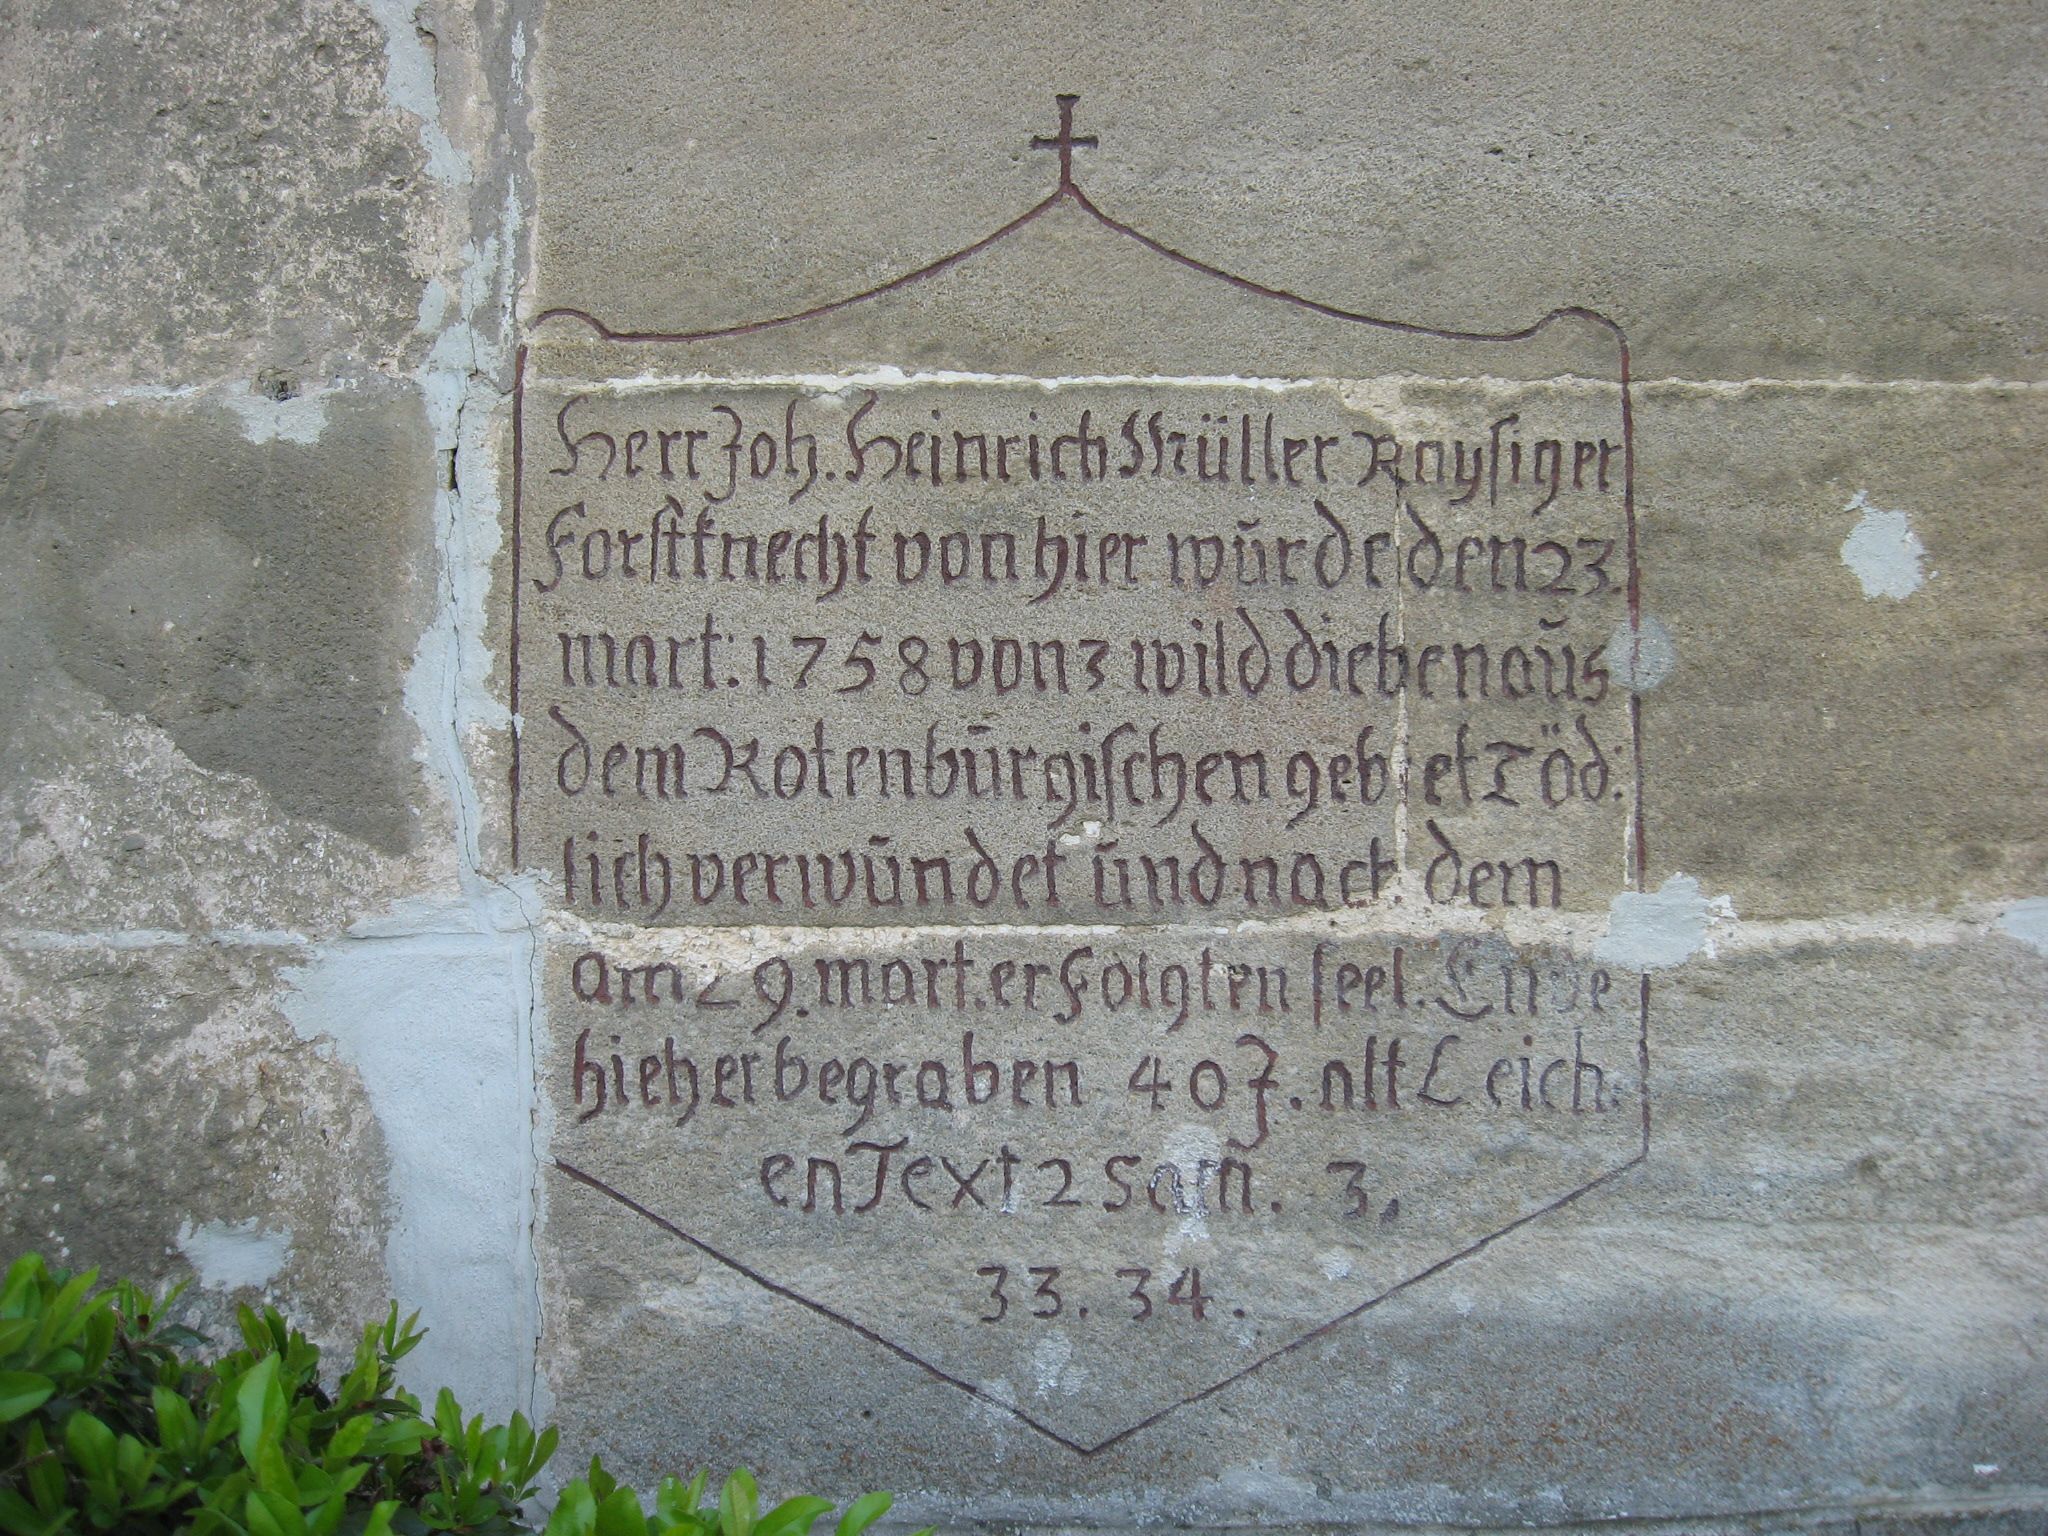 Herr Joh. Heinrich Müller Raysiger
Forstknecht von hier wŭrde den 23.
mart: 1758 von 3 wild dieben aŭs
dem Rotenbŭrgischen gebiet Töd:
lich verwŭndet ŭnd nach dem
am 29. mart. erfolgten seel. Ende
hieher begraben 40 J. alt Leich:
en Text 2 Sam. 3,
33. 34.